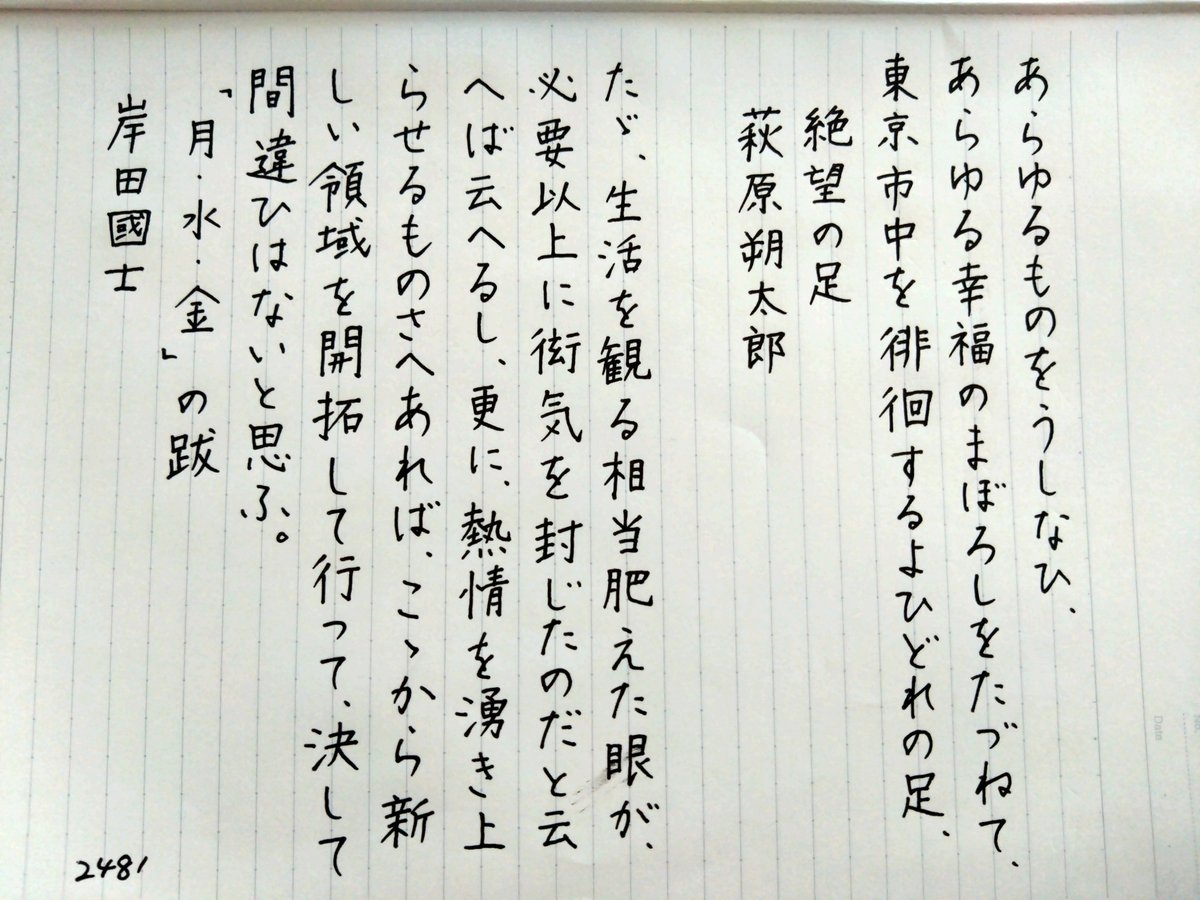 あらゆるものをうしなひ、
あらゆる幸福のまぼろしをたづねて、
東京市中を徘徊するよひどれの足、
絶望の足
萩原朔太郎
たゞ、生活を観る相当肥えた眼が、
必要以上に街気を封じたのだと云
へば云へるし、更に、熱情を湧き上
らせるものさへあれば、こゝから新
しい領域を開拓して行って、決して
間違ひはないと思ふ。
「月・水・金」の跋
岸田國士
2481
Date